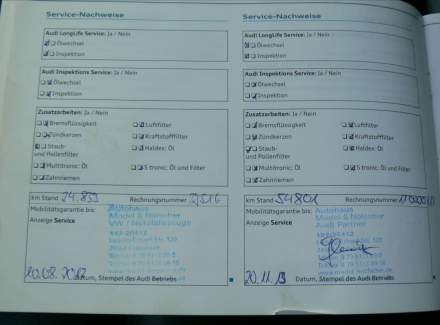 Service-Nachweise
Audi LongLife Service: Ja / Nein
Ölwechsel
Inspektion
Audi Inspektions Service: Ja / Nein
Ölwechsel
Inspektion
Zusatzarbeiten: Ja / Nein
Bremsflüssigkeit
Luftfilter
Zündkerzen
Kraftstofffilter
Staub-
und Pollenfilter
Haldex: Öl
Multitronic: Öl
S tronic: Öl und Filter
Zahnriemen
km Stand
Rechnungsnummer
Mobilitätsgarantie bis:
Anzeige Service
Autohaus
Datum, Stempel des Audi Betriebs
Service-Nachweise
Audi LongLife Service: Ja / Nein
Ölwechsel
Inspektion
Audi Inspektions Service: Ja / Nein
Ölwechsel
Inspektion
Zusatzarbeiten: Ja / Nein
Bremsflüssigkeit
Luftfilter
Zündkerzen
Kraftstofffilter
Staub-
und Pollenfilter
Haldex: Öl
Multitronic: Öl
S tronic: Öl und Filter
Zahnriemen
km Stand 54801
Rechnungsnummer
Mobilitätsgarantie bis:
Anzeige Service
Autohaus
Audi Partner
20.11.13
Datum, Stempel des Audi Betriebs